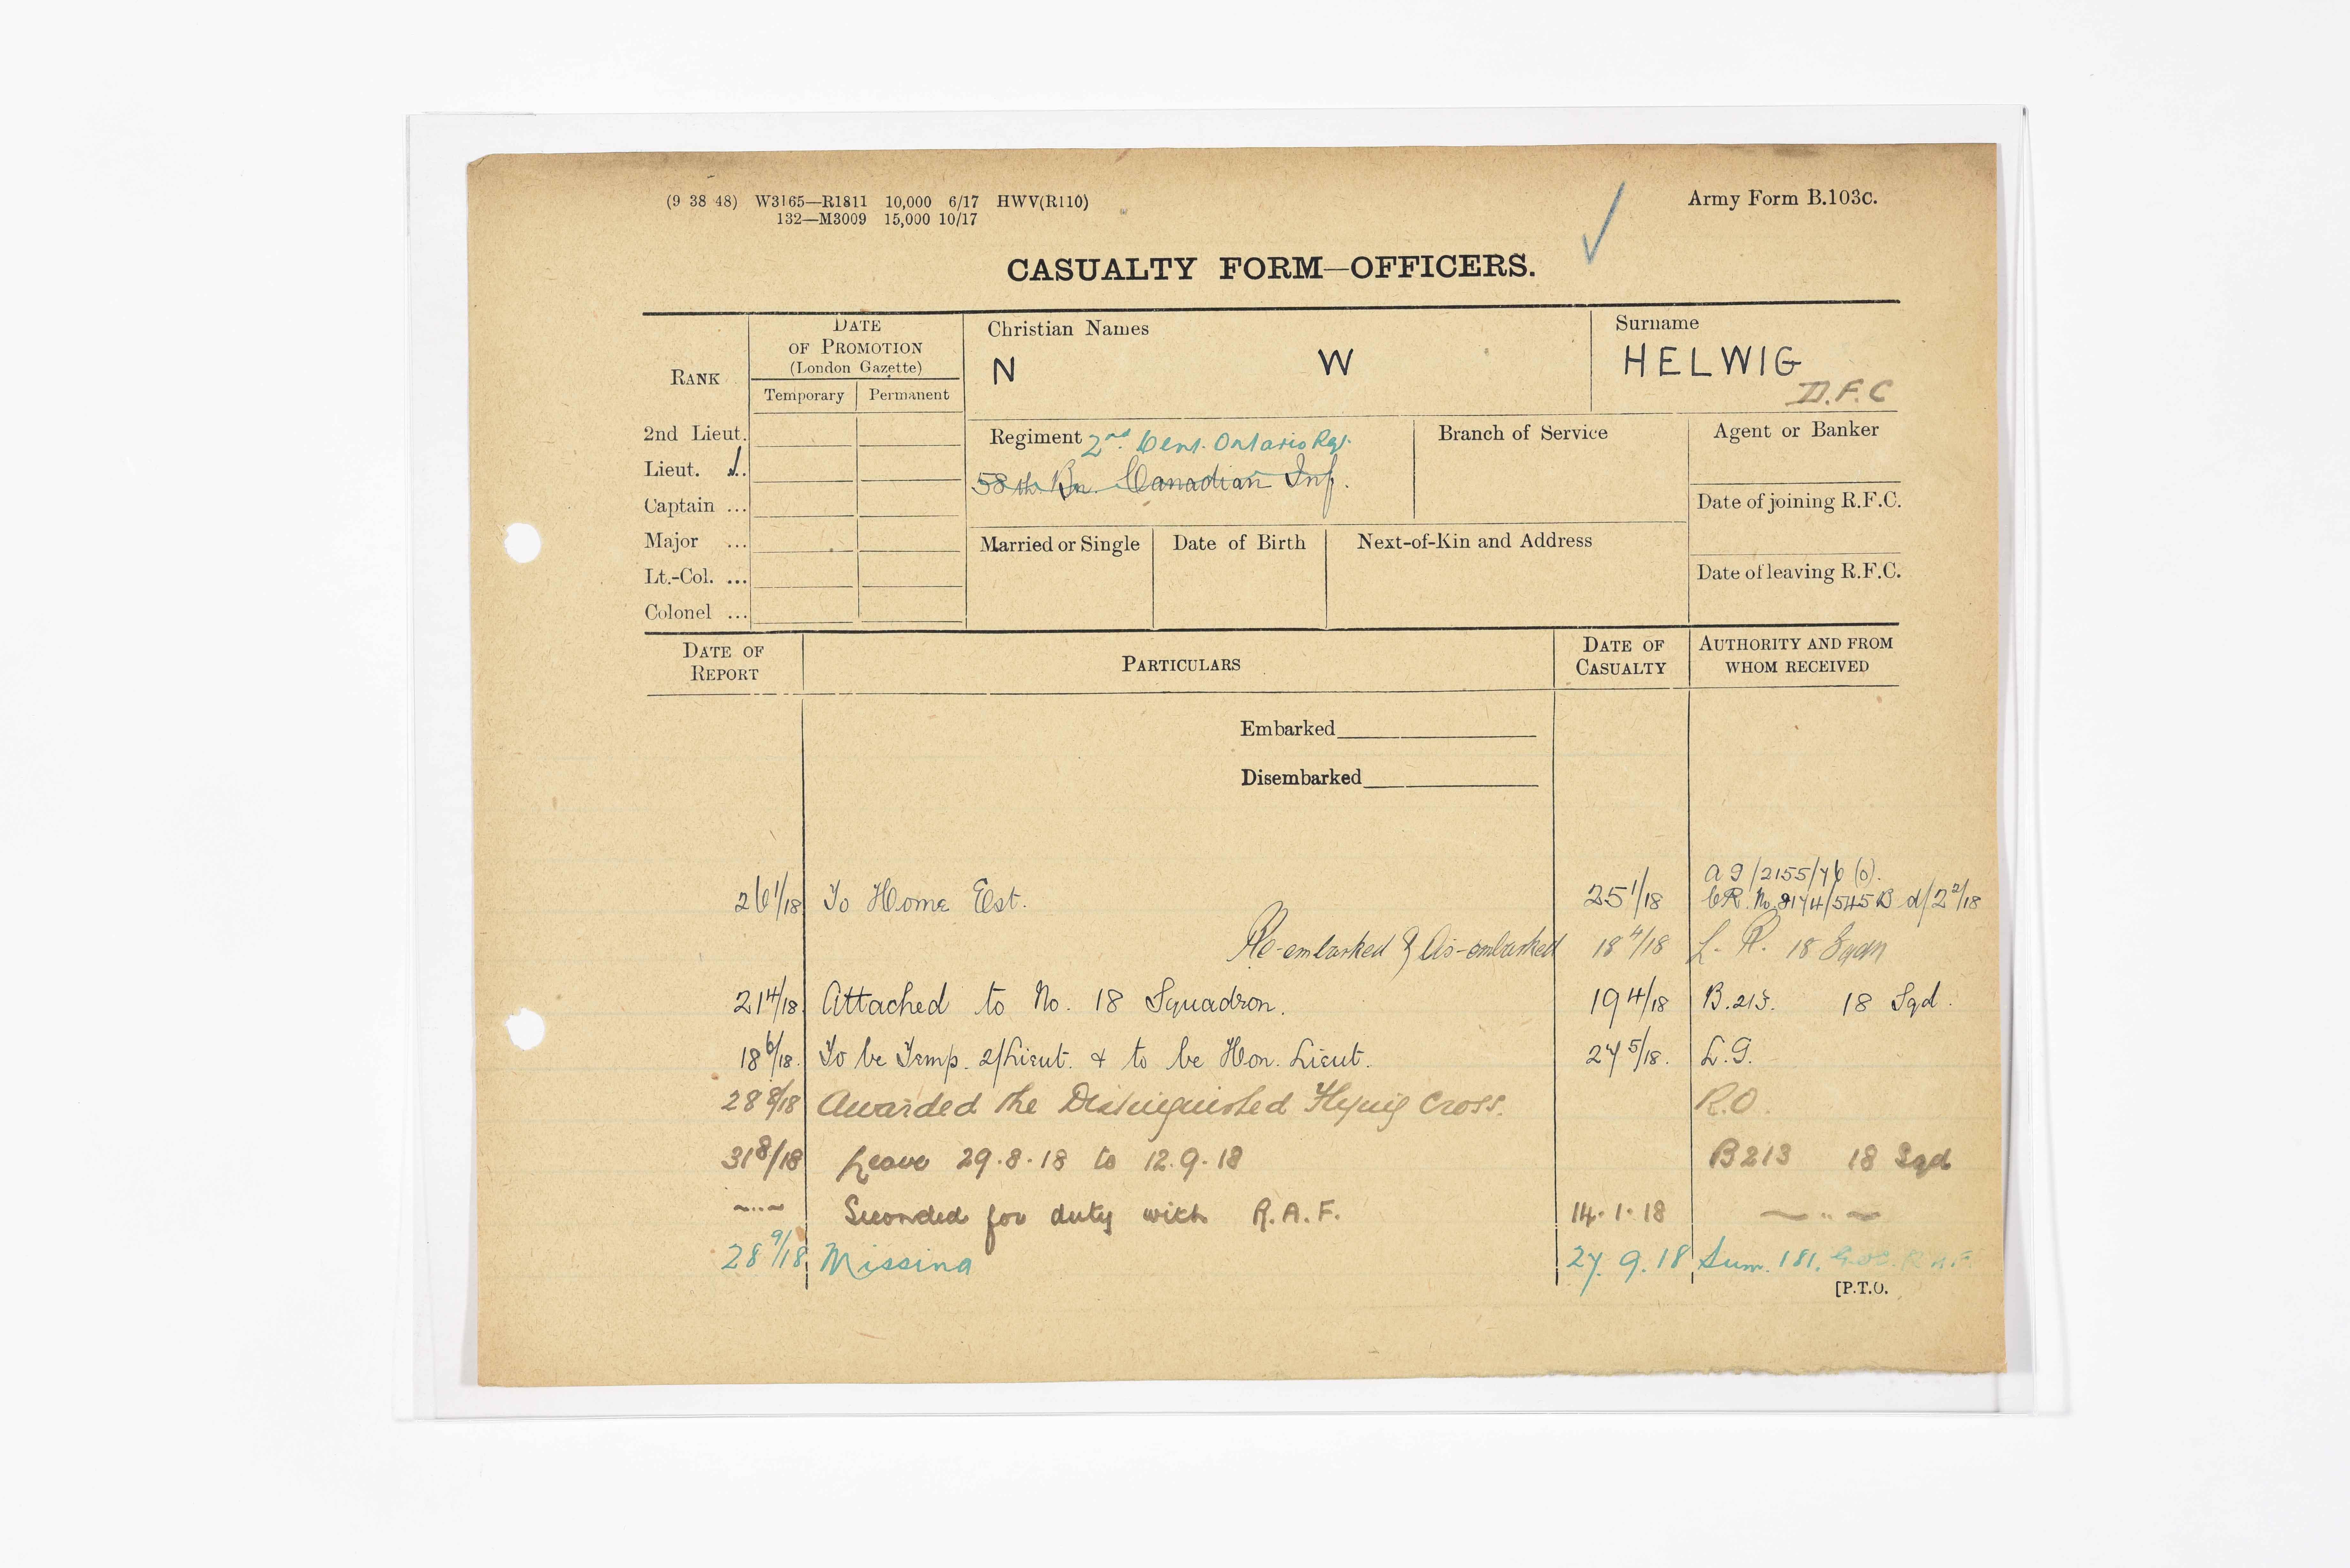 (9 38 48) W3165—R1811 10,000 6/17 HWV(R110)
132—M3009 15,000 10/17
Army Form B.103c.
CASUALTY FORM—OFFICERS.
RANK
DATE OF PROMOTION (London Gazette)
Temporary Permanent
Christian Names
N W
Surname
HELWIG
D.F.C
2nd Lieut.
Lieut.
Captain ...
Major ...
Lt.-Col. ...
Colonel ...
Regiment 2nd Cent. Ontario Reg.
58th Bn. Canadian Inf.
Branch of Service
Agent or Banker
Date of joining R.F.C.
Married or Single
Date of Birth
Next-of-Kin and Address
Date of leaving R.F.C.
DATE OF REPORT
PARTICULARS
DATE OF CASUALTY
AUTHORITY AND FROM WHOM RECEIVED
Embarked
Disembarked
26 1/18 To Home Est. 25 1/18 AG/2155/76 (o).
CR. No. 8174/545B d/2 2/18
Re-embarked & Dis-embarked 18 4/18 L. R. 18 Sqdn
21 4/18 Attached to No. 18 Squadron. 19 4/18 B.213. 18 Sqd.
18 6/18. To be Temp. 2/Lieut. & to be Hon. Lieut. 27 5/18. L.G.
28 8/18 Awarded the Distinguished Flying Cross. R.O.
31 8/18 Leave 29.8.18 to 12.9.18 B213 18 Sqd
~..~ Seconded for duty with R.A.F. 14.1.18 ~..~
28 9/18 Missing 27.9.18 Sum. 181. R.A.F.
[P.T.O.